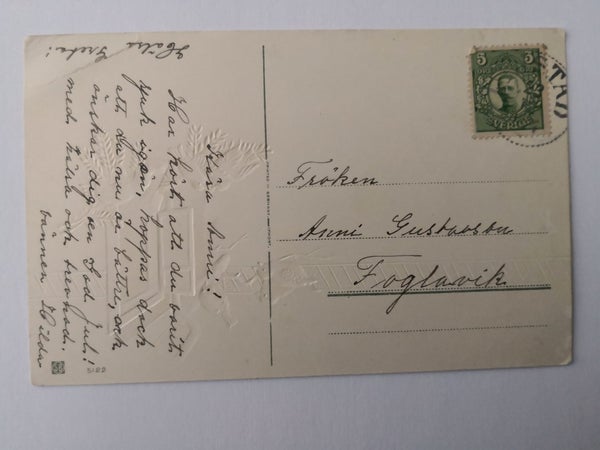 Kära Anni!
Har hört att du varit
sjuk igen, hoppas doch
att Du nu är bättre, och
önskar dig en God Jul!
med. kära och trevnad.
vännen Hilda
Hälsa Greta!
5
5
ÖRE
SVERIGE
STAD
Fröken
Anni Gustavsson
Foglavik
5122